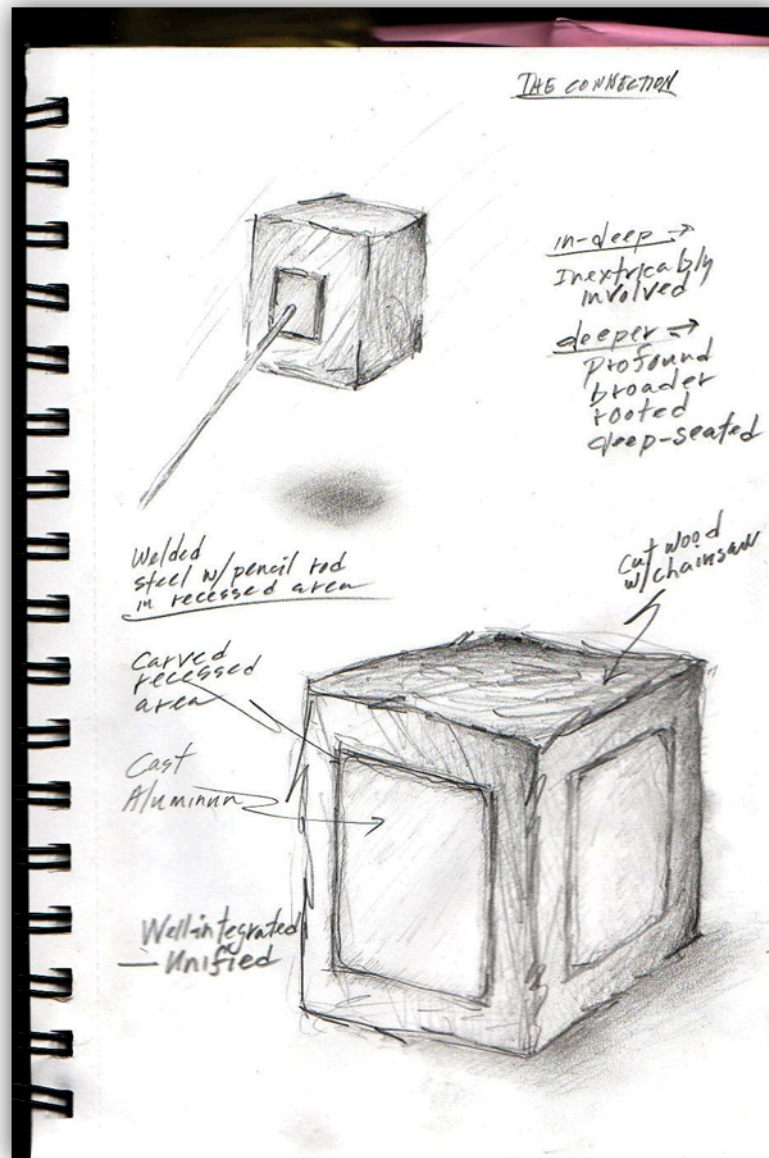 THE CONNECTION
in-deep →
Inextricably
involved
deeper →
profound
broader
rooted
deep-seated
Welded
steel w/pencil rod
in recessed area
Cut wood
w/chainsaw
Carved
recessed
area
Cast
Aluminum
Well-integrated
— Unified